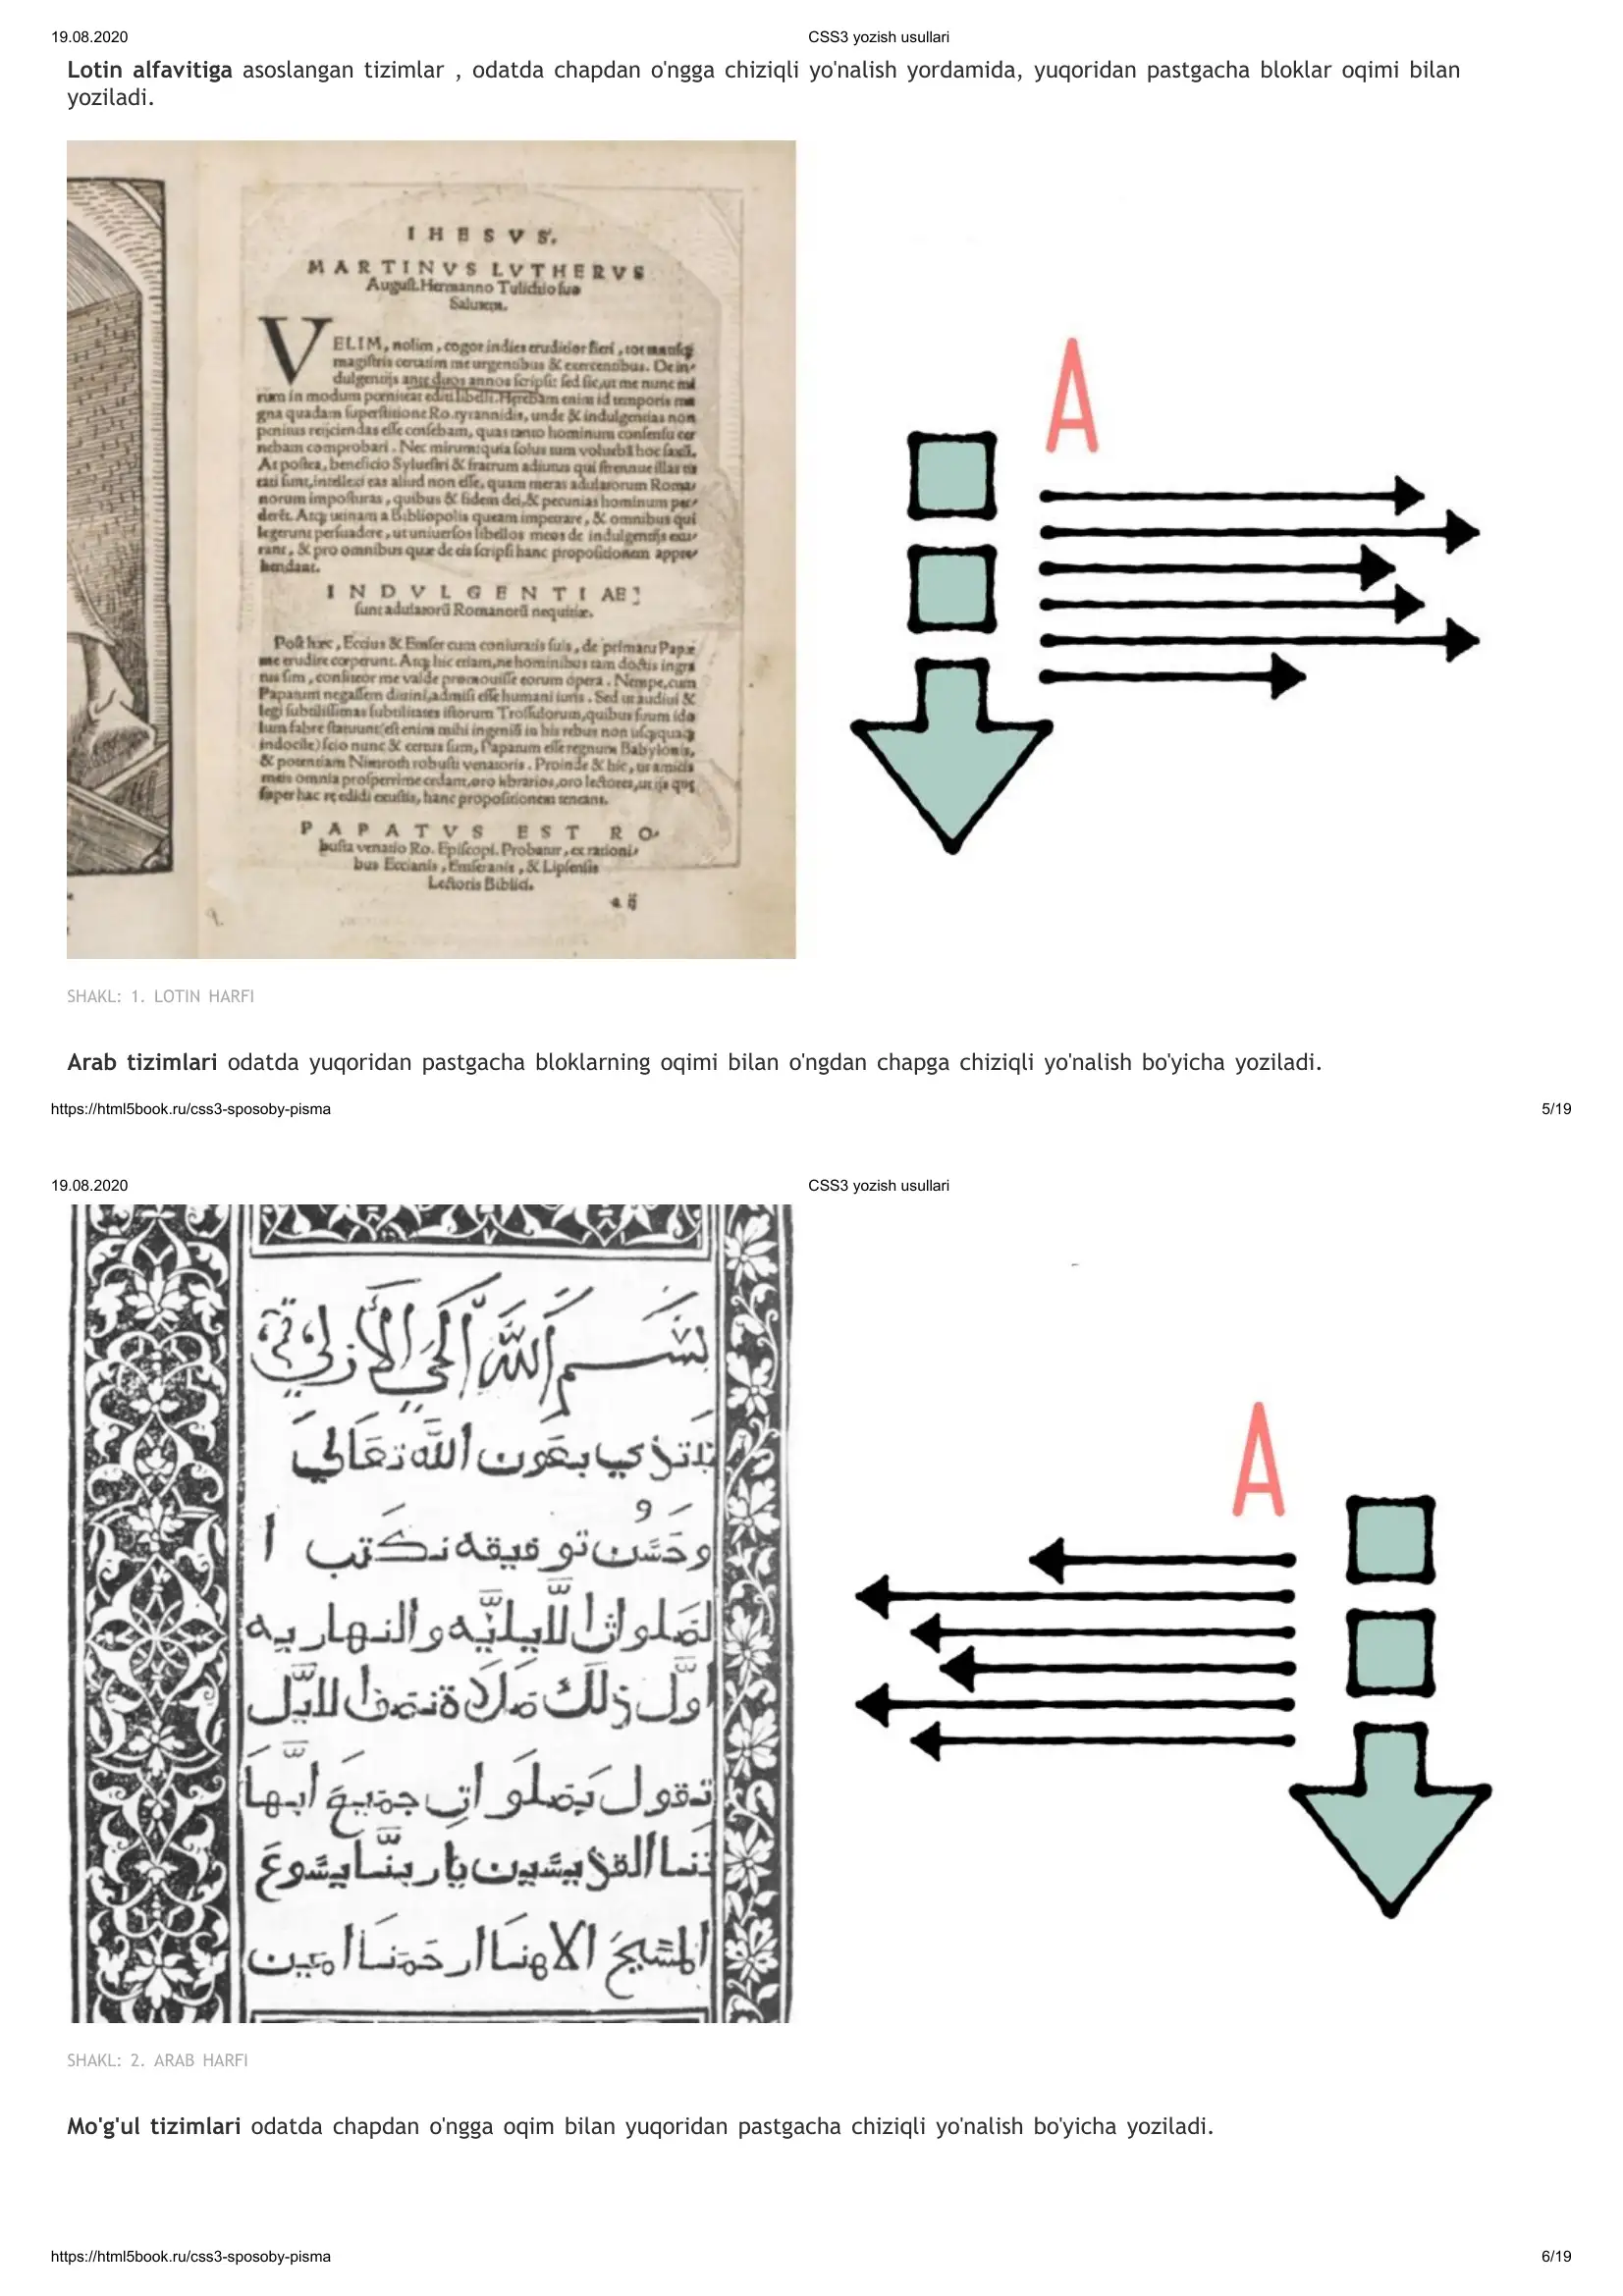 19.08.2020 CSS3 yozish usullari
Lotin alfavitiga asoslangan tizimlar , odatda chapdan o'ngga chiziqli yo'nalish yordamida, yuqoridan pastgacha bloklar oqimi bilan
yoziladi.
I H E S V S.
M A R T I N V S L V T H E R V S
August. Hermanno Tulichio suo
Salutem.
VELIM, nolim, cogor indies eruditior fieri, tot
magistris certatim me urgentibus & exercentibus. De in-
dulgentijs ante duos annos scripsi: sed sic, ut me nunc mi
rum in modum poeniteat editi libelli. Herebam enim id temporis ma
gna quadam superstitione Ro. tyrannidis, unde & indulgentias non
penitus reijciendas esse censebam, quas tanto hominum consensu cer
nebam comprobari. Nec mirum: quia solus tum volueba hoc saxu.
At postea, beneficio Syluestri & fratrum adiutus qui strennue illas
tati sunt, intellexi eas aliud non esse, quam meras adulatorum Roma-
norum imposturas, quibus & fidem dei, & pecunias hominum per-
derēt. Atq; utinam a Bibliopolis queam impetrare, & omnibus qui
legerunt persuadere, ut uniuersos libellos meos de indulgentijs exu-
rant, & pro omnibus quæ de eis scripsi hanc propositionem appre-
hendant.
I N D V L G E N T I AE
sunt adulatorū Romanorū nequitiæ.
Post hæc, Eccius & Emser cum coniuratis suis, de primatu Papæ
me erudire coeperunt. Atq; hic etiam, ne hominibus tam doctis ingra
tus sim, confiteor me valde promouisse eorum opera. Nempe, cum
Papatum negassem diuini, admisi esse humani iuris. Sed ut audiui &
legi subtilissimas subtilitates istorum Trossulorum, quibus suum ido
lum fabre statuunt (est enim mihi ingeniū in his rebus non usq;quaq;
indocile) scio nunc & certus sum, Papatum esse regnum Babylonis,
& potentiam Nimroth robusti venatoris. Proinde & hic, ut amicis
meis omnia prosperrime cedant, oro librarios, oro lectores, ut ijs quę
super hac re edidi exustis, hanc propositionem teneant.
P A P A T V S E S T R O-
busta venatio Ro. Episcopi. Probatur, ex rationi-
bus Eccianis, Emseranis, & Lipsensis
Lectoris Biblici.
a ij
A
SHAKL: 1. LOTIN HARFI
Arab tizimlari odatda yuqoridan pastgacha bloklarning oqimi bilan o'ngdan chapga chiziqli yo'nalish bo'yicha yoziladi.
https://html5book.ru/css3-sposoby-pisma 5/19
19.08.2020 CSS3 yozish usullari
بسم الله الحي الازلي
نبتدي بعون الله تعالي
وحسن توفيقه نكتب ا
لصلوات الليليه والنهاريه
اول ذلك صلاة نصف الليل
تقول بصلوات جميع ابها
تنا القديسين يا ربنا يسوع
المسيح الاهنا ارحمنا امين
A
SHAKL: 2. ARAB HARFI
Mo'g'ul tizimlari odatda chapdan o'ngga oqim bilan yuqoridan pastgacha chiziqli yo'nalish bo'yicha yoziladi.
https://html5book.ru/css3-sposoby-pisma 6/19